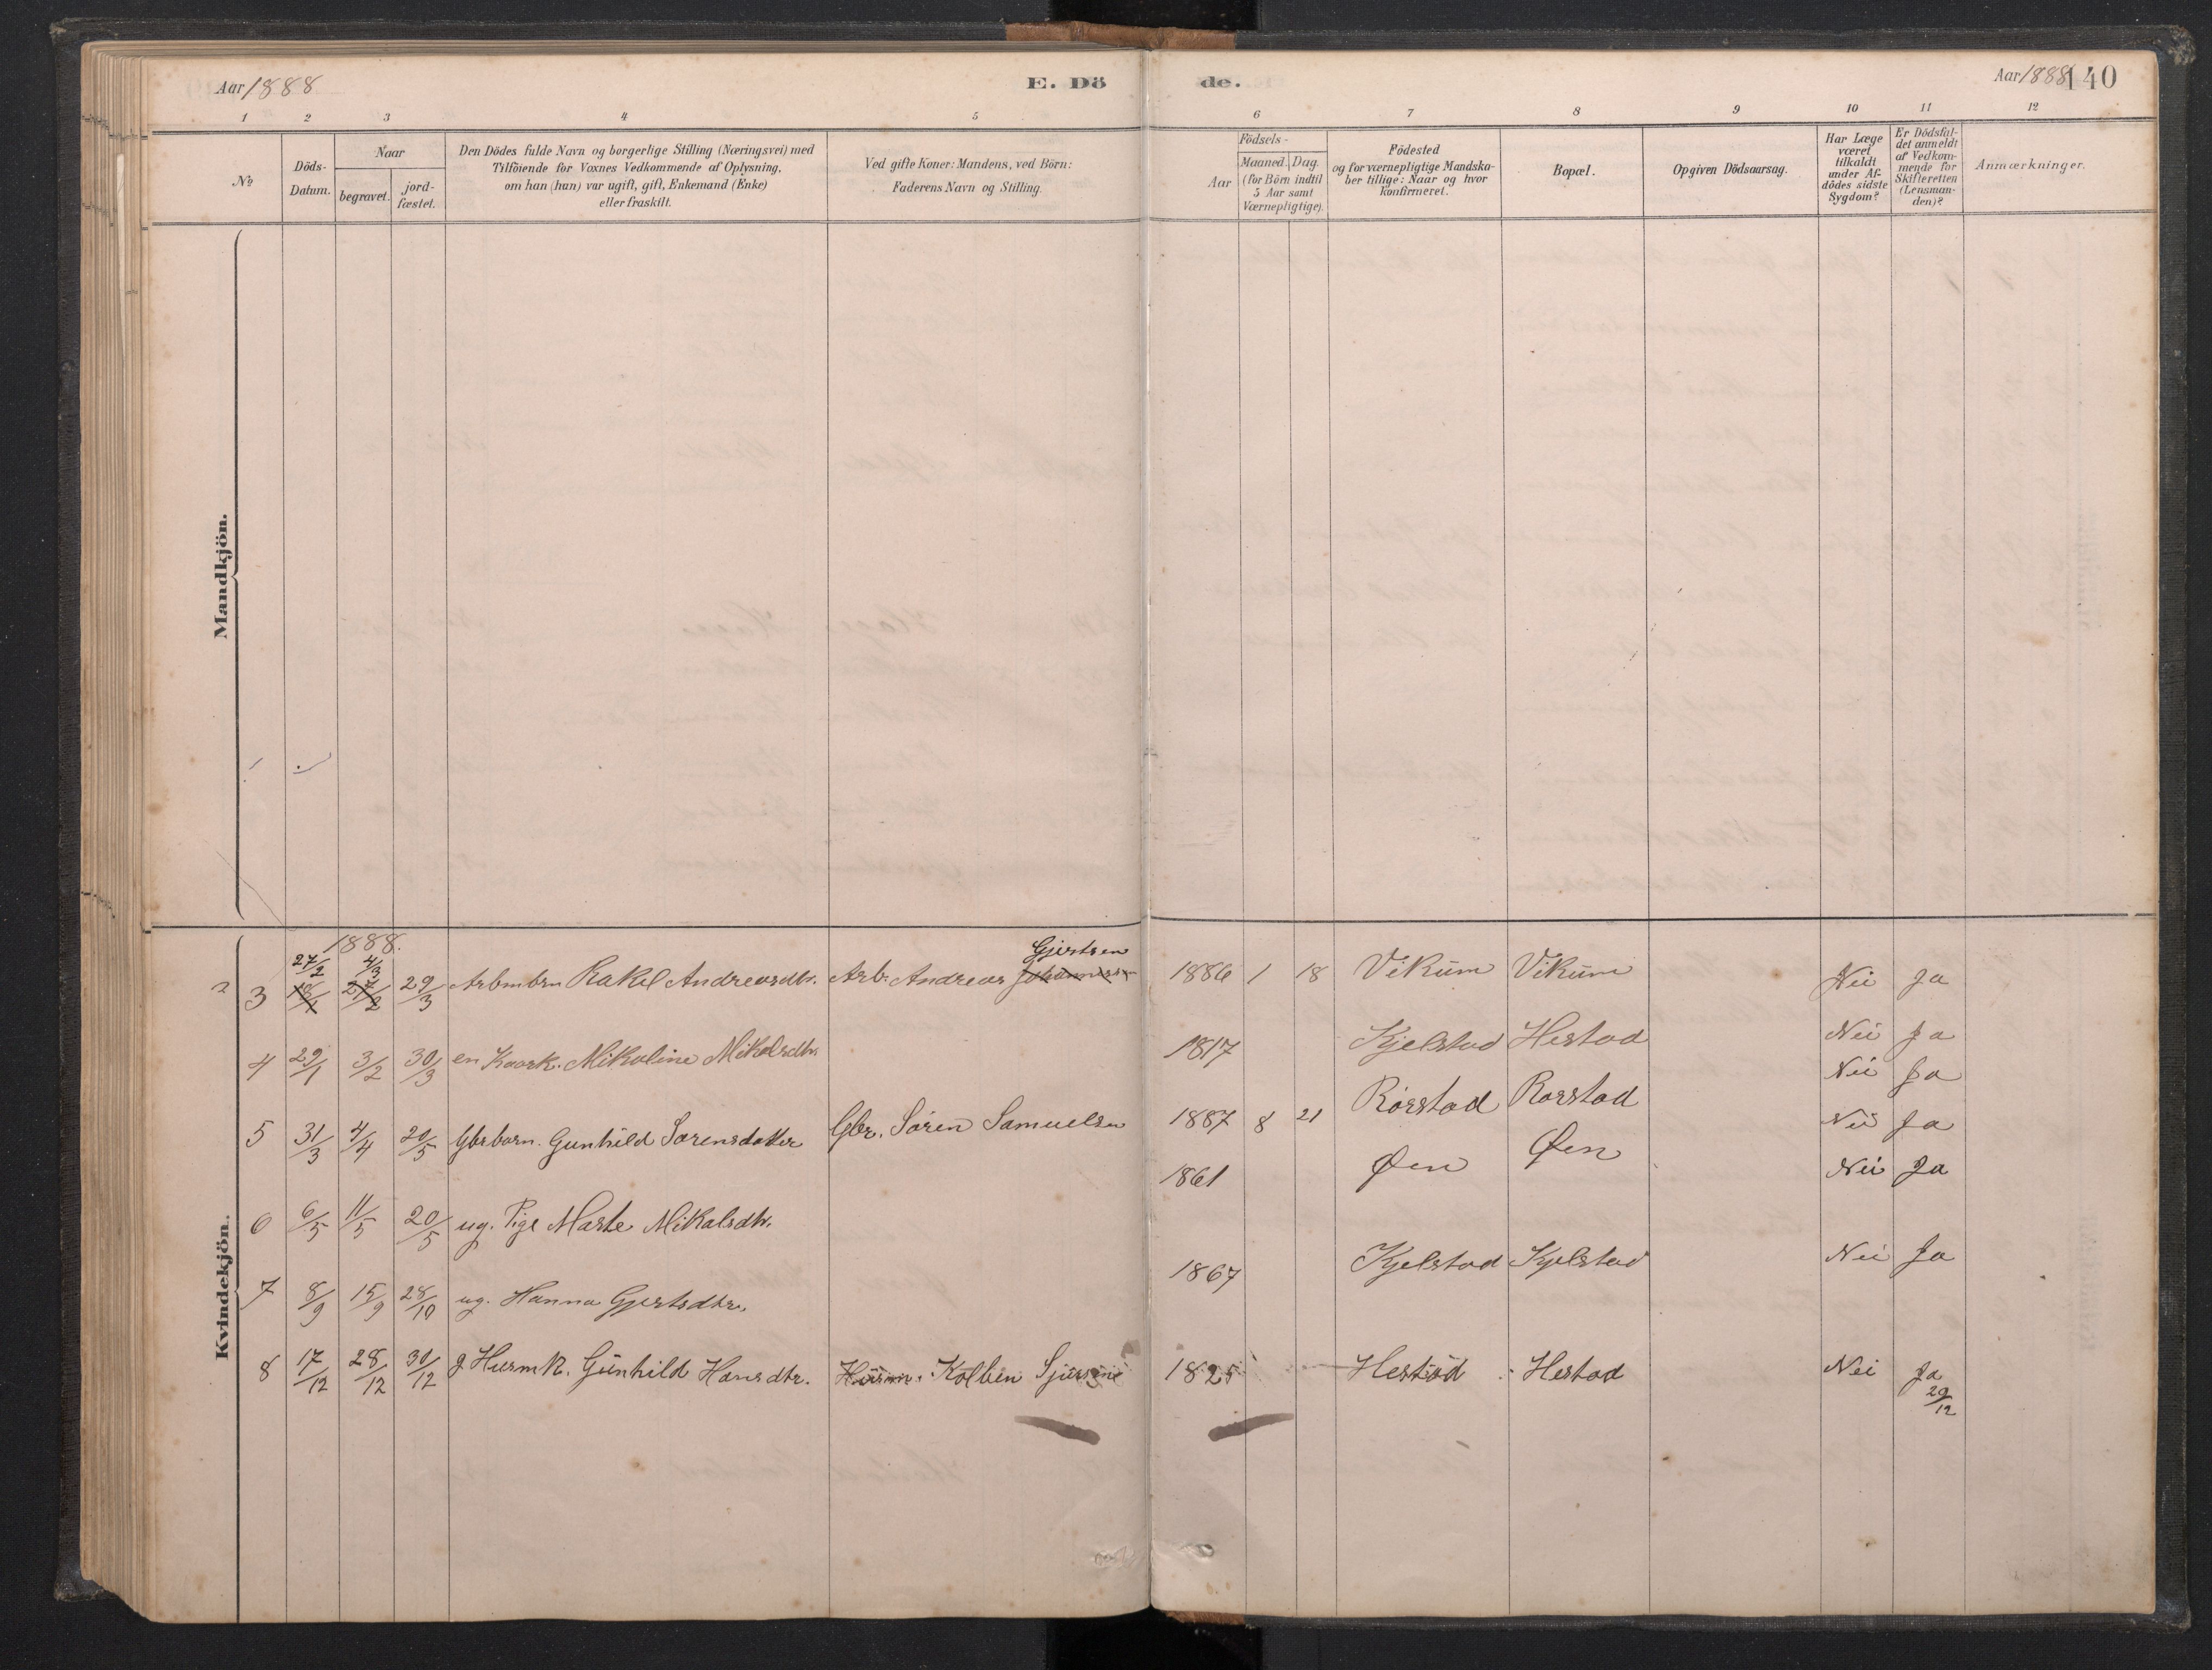 Aar 1888 E. Dö de. Aar 1888 140
1 2 3 4 5 6 7 8 9 10 11 12
No
Döds-Datum.
Naar
begravet. jord-fæstet.
Den Dödes fulde Navn og borgerlige Stilling (Næringsvei) med
Tilföiende for Voxnes Vedkommende af Oplysning,
om han (hun) var ugift, gift, Enkemand (Enke)
eller fraskilt.
Ved gifte Koner: Mandens, ved Börn:
Faderens Navn og Stilling.
Födsels-
Aar Maaned. Dag.
(for Börn indtil
5 Aar samt
Værnepligtige).
Födested
og for værnepligtige Mandska-
ber tillige: Naar og hvor
konfirmeret.
Bopæl.
Opgiven Dödsaarsag.
Har Læge
været
tilkaldt
under Af-
dödes sidste
Sygdom?
Er Dödsfal-
det anmeldt
af Vedkom-
mende for
Skifteretten
(Lensman-
den)?
Anmærkninger.
Mandkjön.
Kvindekjön.
1888.
27/2 4/3 Gjertsen
3 18/1 27/2 29/3 Arbmbrn Rakel Andreasdtr. Arb. Andreas Johannessen 1886 1 18 Vikum Vikum Nei Ja
4 29/1 3/2 30/3 en Kaark. Mikoline Mikalsdtr. 1817 Kjelstad Hestad Nei Ja
Nei Ja
5 31/3 4/4 20/5 Gbrbarn. Gunhild Sørensdatter Gbr. Søren Samuelsen 1887 8 21 Rørstad Rørstad Nei Ja
6 6/5 11/5 20/5 ug. Pige Marte Mikalsdtr. 1861 Øen Øen Nei Ja
7 8/9 15/9 28/10 ug. Hanna Gjertsdtr. 1867 Kjelstad Kjelstad Nei Ja
8 17/12 28/12 30/12 g Husmk. Gunhild Hansdtr. Husm. Kolben 1825 Hestad Hestad Nei Ja
29/12